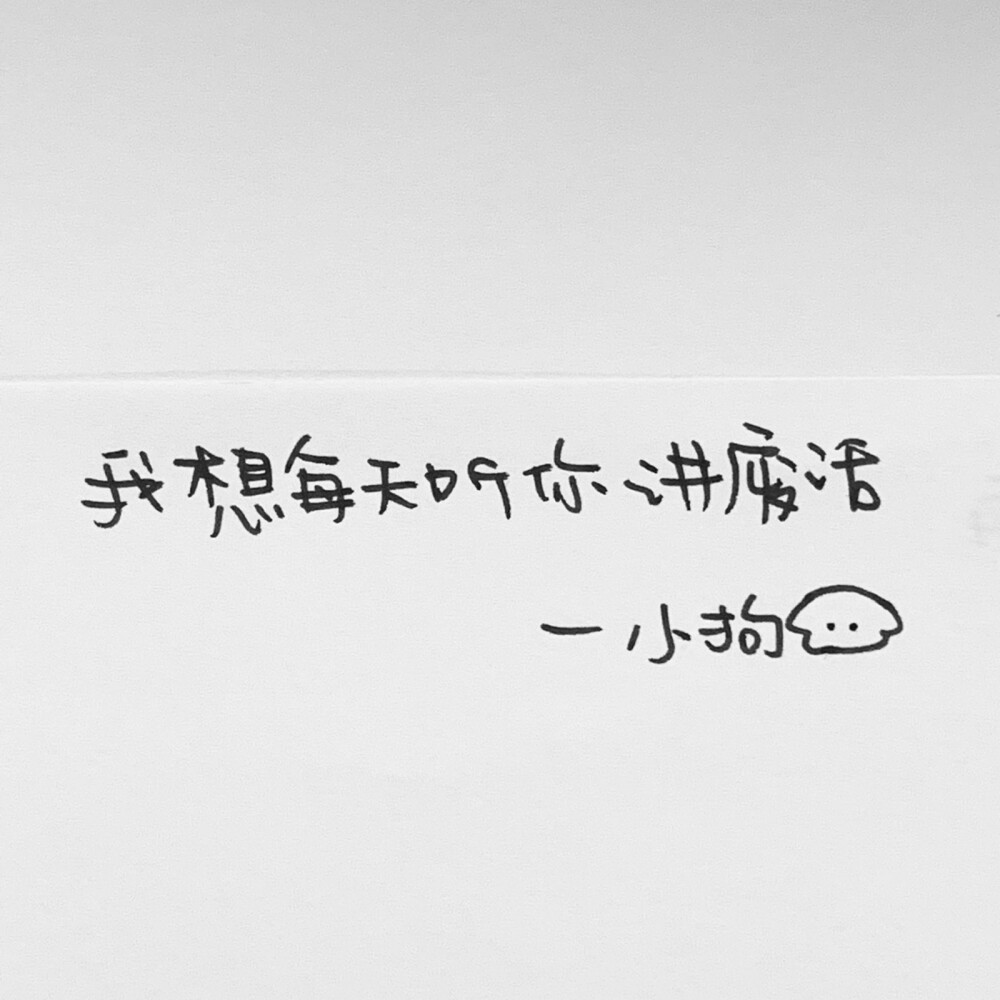 我想每天听你讲废话
一小狗